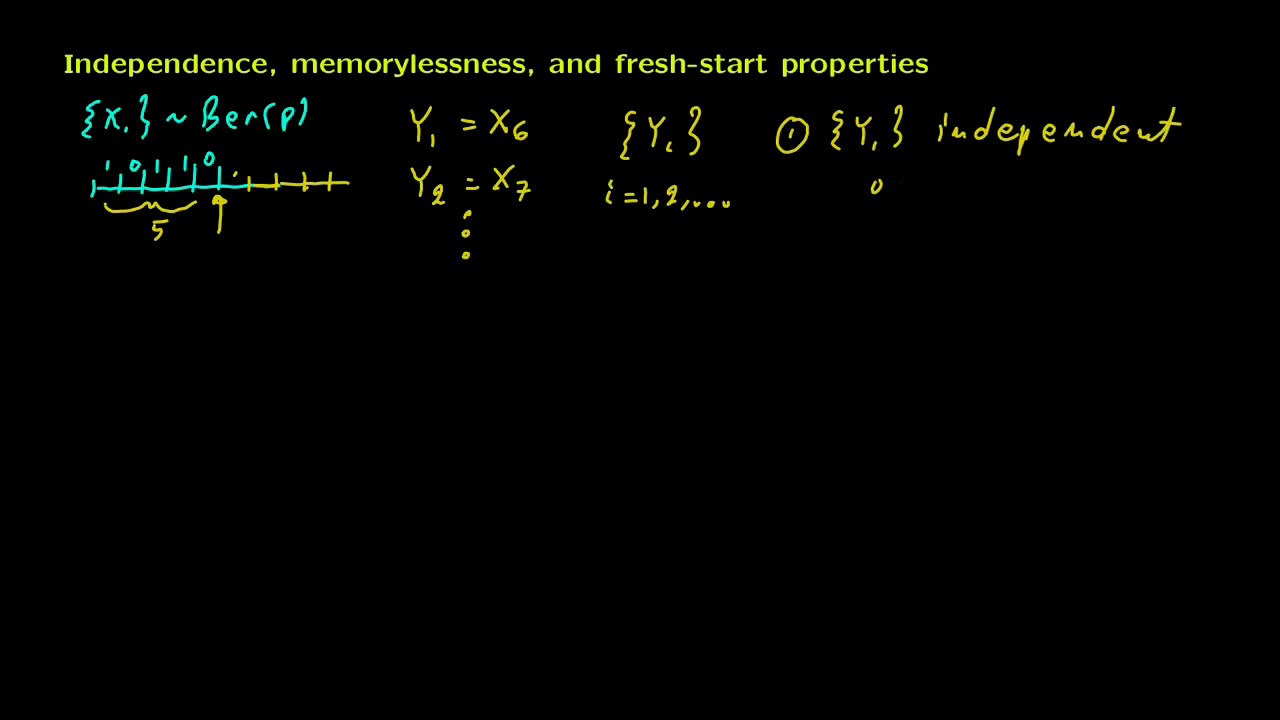 Independence, memorylessness, and fresh-start properties
{X_i} ~ Ber(p)
1 0 1 1 1 0
5
Y_1 = X_6
Y_2 = X_7
⋮
{Y_i}
i = 1, 2, ...
① {Y_i} independent
o